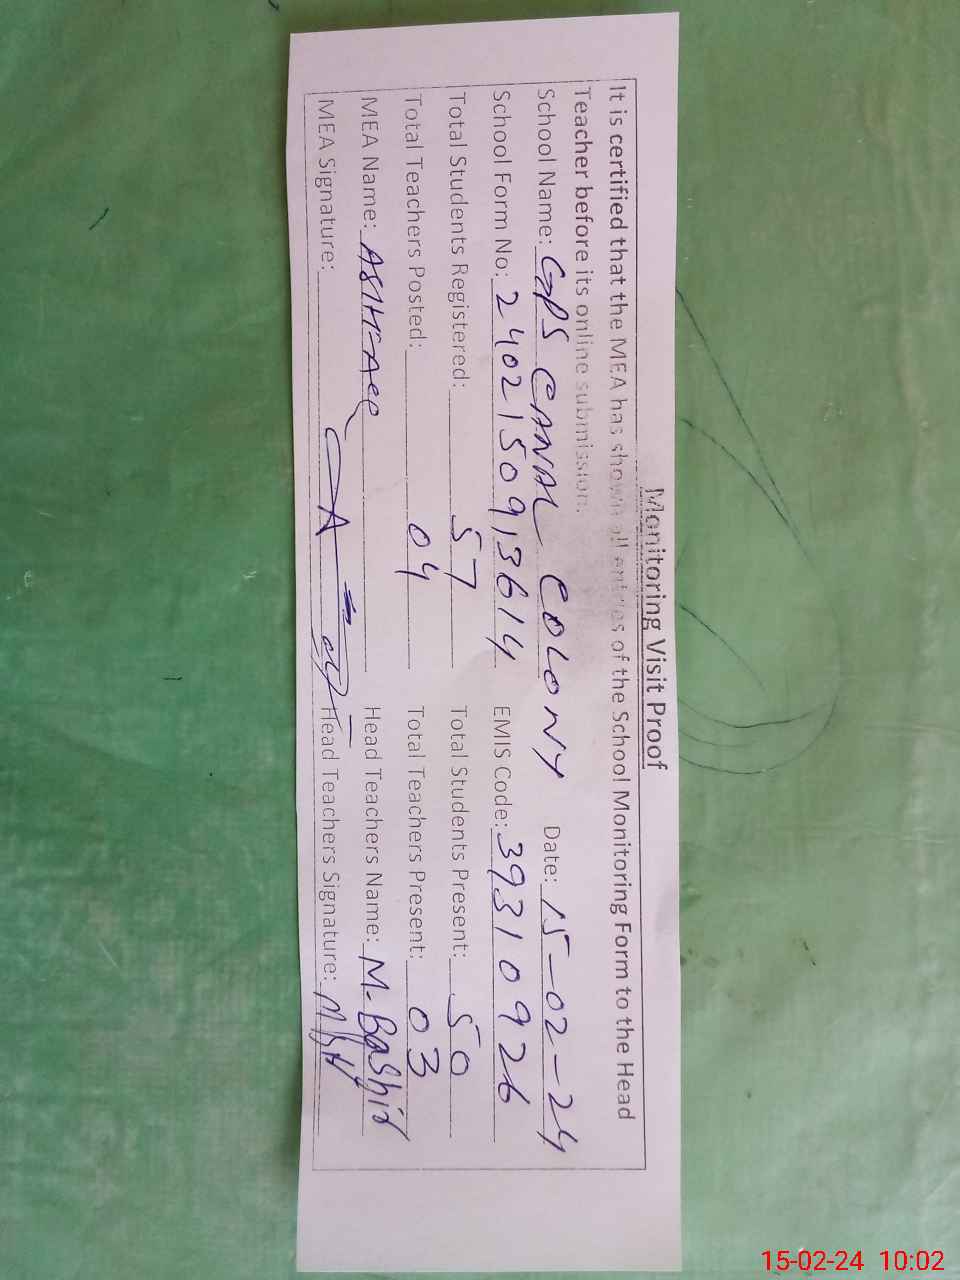 Monitoring Visit Proof
It is certified that the MEA has shown all entries of the School Monitoring Form to the Head
Teacher before its online submission.
School Name: GPS CANAL COLONY Date: 15-02-24
School Form No: 2402150913614 EMIS Code: 39310926
Total Students Registered: 57 Total Students Present: 50
Total Teachers Posted: 04 Total Teachers Present: 03
MEA Name: Head Teachers Name: M. Bashir
MEA Signature: Head Teachers Signature:
15-02-24 10:02